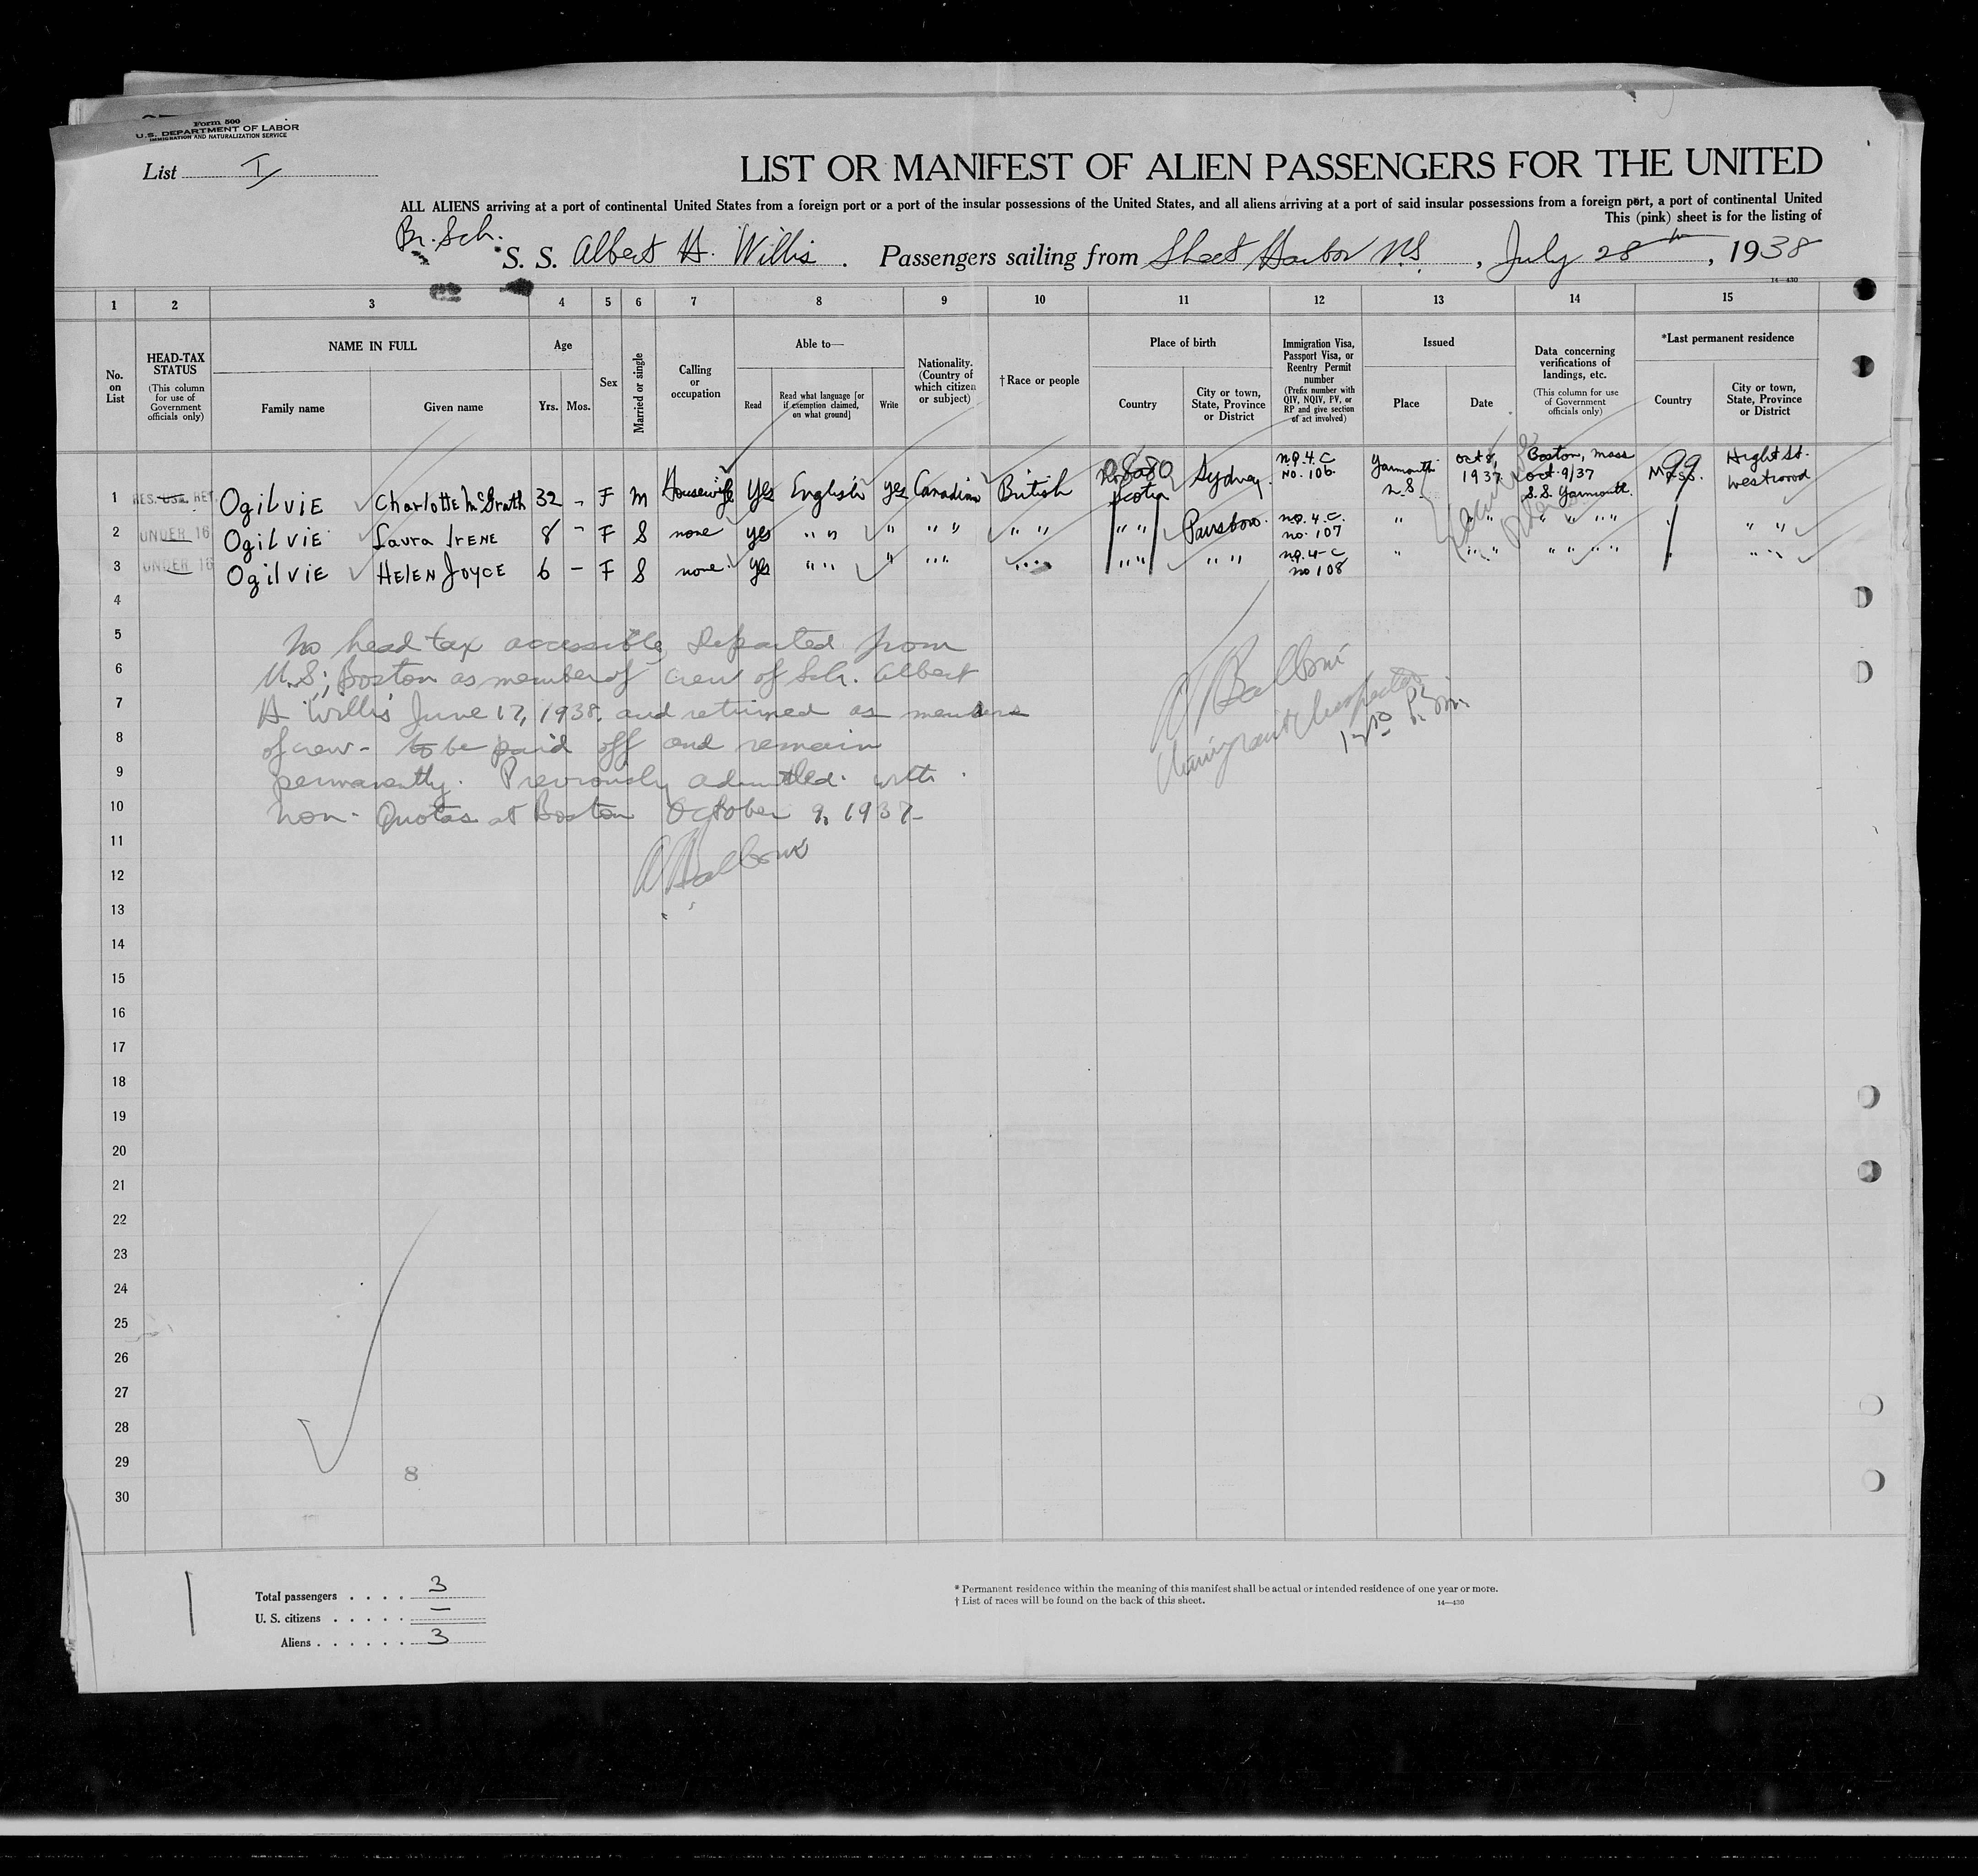 Form 500
U.S. DEPARTMENT OF LABOR
IMMIGRATION AND NATURALIZATION SERVICE
List I
LIST OR MANIFEST OF ALIEN PASSENGERS FOR THE UNITED
ALL ALIENS arriving at a port of continental United States from a foreign port or a port of the insular possessions of the United States, and all aliens arriving at a port of said insular possessions from a foreign port, a port of continental United
This (pink) sheet is for the listing of
Br. Sch.
S. S. Albert H. Willis. Passengers sailing from Sheet Harbor N.S., July 28th, 1938
14—430
1 2 3 4 5 6 7 8 9 10 11 12 13 14 15
No. on List
HEAD-TAX STATUS (This column for use of Government officials only)
NAME IN FULL
Family name
Given name
Age
Yrs.
Mos.
Sex
Married or single
Calling or occupation
Able to—
Read
Read what language [or if exemption claimed, on what ground]
Write
Nationality. (Country of which citizen or subject)
†Race or people
Place of birth
Country
City or town, State, Province or District
Immigration Visa, Passport Visa, or Reentry Permit number (Prefix number with QIV, NQIV, PV, or RP and give section of act involved)
Issued
Place
Date
Data concerning verifications of landings, etc. (This column for use of Government officials only)
*Last permanent residence
Country
City or town, State, Province or District
1 RES. USA. RET. Ogilvie Charlotte McGrath 32 - F M Housewife Yes English yes Canadian British Scotia Sydney. N.Q.4.C No. 106 Yarmouth N.S. Oct 8, 1937 Boston, Mass Oct 9/37 S.S. Yarmouth. Mass. 99 Hight St. Westwood
2 UNDER 16 Ogilvie Laura Irene 8 - F S none yes " " " " " " " " " Parsboro. N.Q.4.C. no. 107 " " " " " " " " "
3 UNDER 16 Ogilvie Helen Joyce 6 - F S none yes " " " " " " " " " " " N.Q.4-C no 108 " " " " " " " " "
4
5 No head tax accessible, Departed from
6 U.S.; Boston as member of crew of Sch. Albert
7 H Willis June 17, 1938. and returned as members
8 of crew - to be paid off and remain
9 permanently. Previously admitted with
10 non-Quotas at Boston October 9, 1937-
A Balboni
A Balboni
Immigrant Inspector
11
12
13
14
15
16
17
18
19
20
21
22
23
24
25
26
27
28
29
30
8
Total passengers . . . . 3
U. S. citizens . . . . . —
Aliens . . . . . . 3
* Permanent residence within the meaning of this manifest shall be actual or intended residence of one year or more.
† List of races will be found on the back of this sheet.
14—430